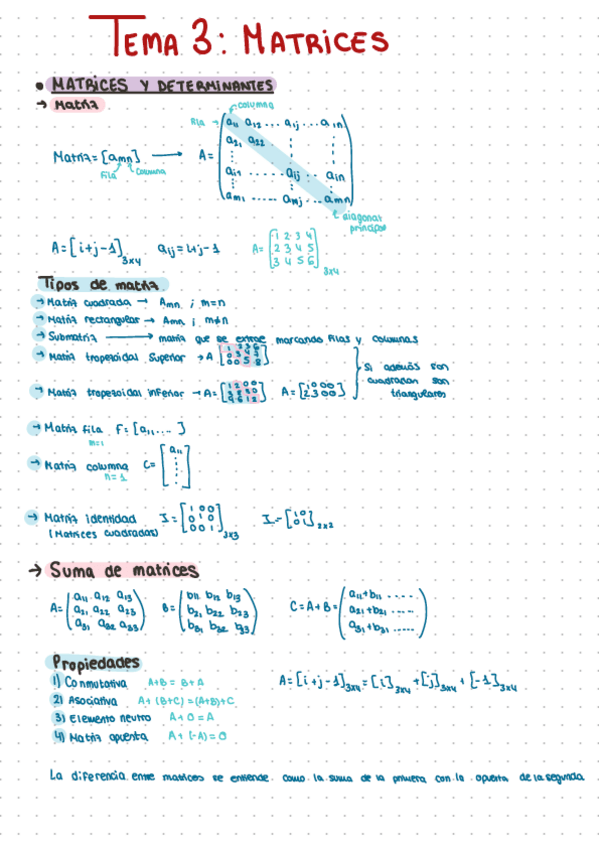 TEMA 3: MATRICES
• MATRICES Y DETERMINANTES
→ Matriz
columna
Fila
Matriz = [amn] → A = (a11 a12 ... aij ... a1n
a21 a22 ⋮ ⋮
⋮
ai1 ...... aij .. ain
⋮
am1 ..... amj ... amn)
Fila columna
diagonal principal
A = [i+j-1]3x4 aij = i+j-1 A = [1 2 3 4
2 3 4 5
3 4 5 6]3x4
Tipos de matriz
→ Matriz cuadrada → Amn ; m=n
→ Matriz rectangular → Amn ; m≠n
→ Submatriz → matriz que se extrae marcando filas y columnas
→ Matriz trapezoidal superior → A
→ Matriz trapezoidal inferior → A = A = [1 0 0 0
2 3 0 0]
Si además son
cuadradas son
triangulares
→ Matriz fila F = [a11 .... ]
m=1
→ Matriz columna C = [a11
⋮]
n=1
→ Matriz identidad I = [1 0 0
0 1 0
0 0 1]3x3 I = [1 0
0 1]2x2
(Matrices cuadradas)
→ Suma de matrices
A = (a11 a12 a13
a21 a22 a23
a31 a32 a33) B = (b11 b12 b13
b21 b22 b23
b31 b32 b33) C = A+B = (a11+b11 .....
a21+b21 .....
a31+b31 .....)
Propiedades
1) Conmutativa A+B = B+A
A = [i+j-1]3x4 = [i]3x4 + [j]3x4 + [-1]3x4
2) Asociativa A+(B+C) = (A+B)+C
3) Elemento neutro A+0 = A
4) Matriz opuesta A+(-A) = 0
La diferencia entre matrices se entiende como la suma de la primera con la opuesta de la segunda